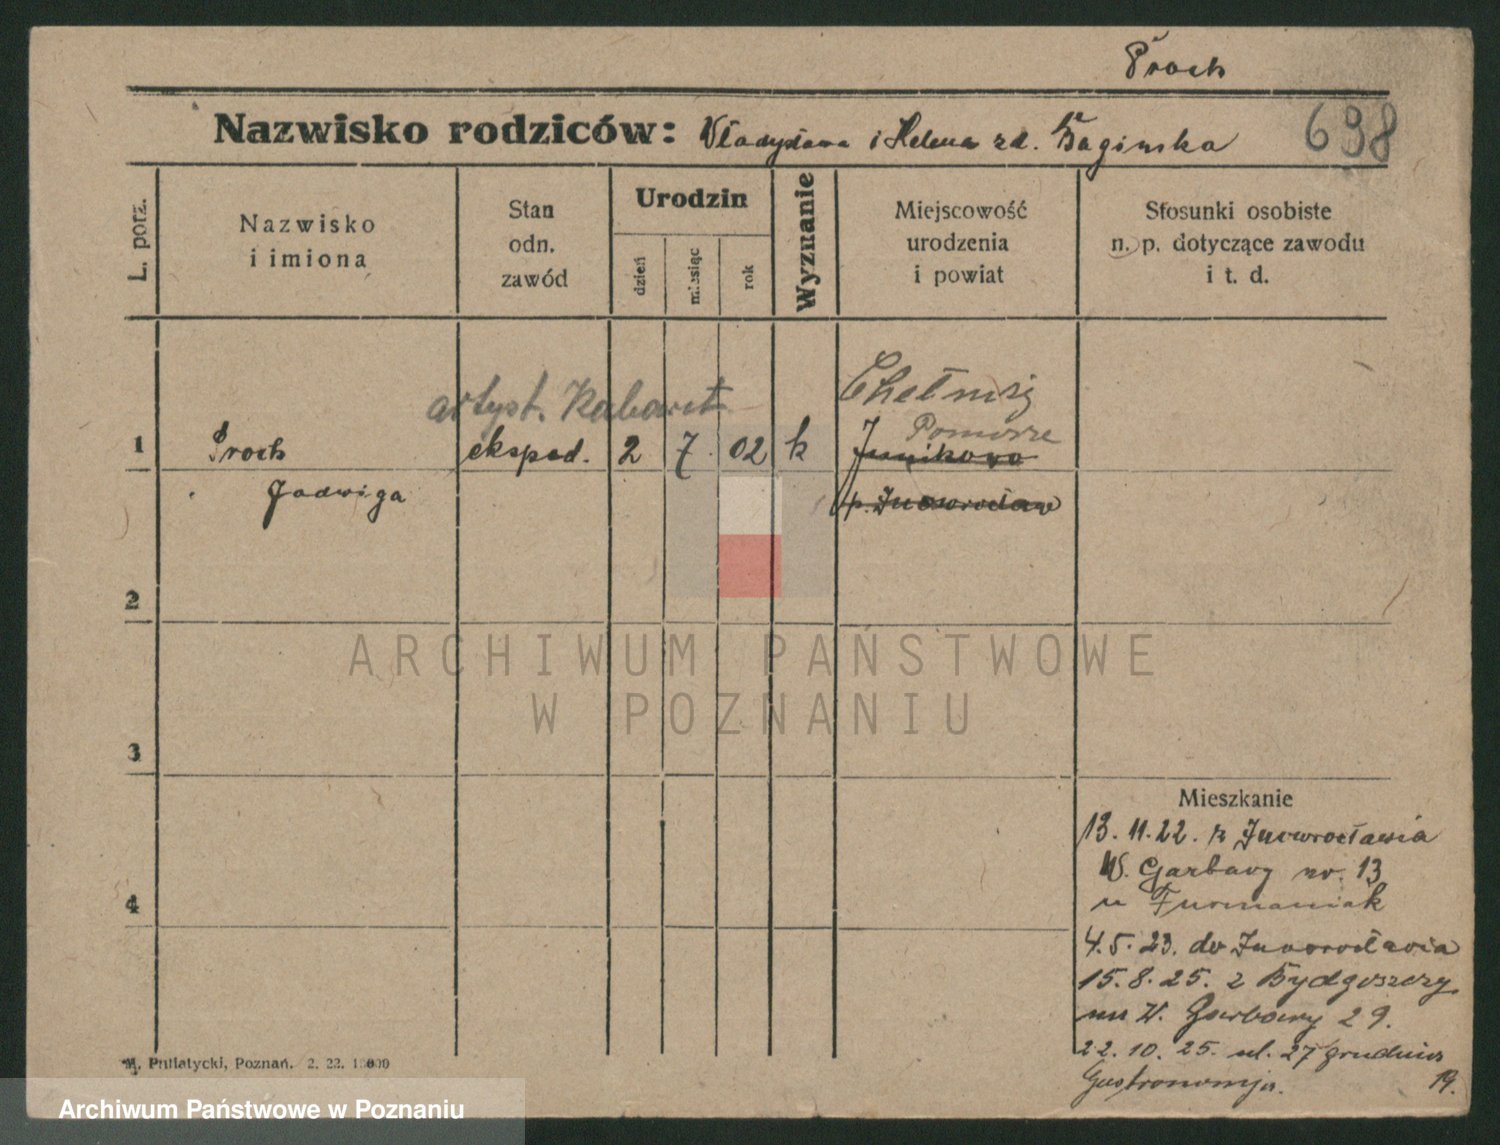 Proch
Nazwisko rodziców: Władysława i Helena zd. Bagińska 698
L. porz.
Nazwisko
i imiona
Stan
odn.
zawód
Urodzin
dzień
miesiąc
rok
Wyznanie
Miejscowość
urodzenia
i powiat
Stosunki osobiste
n. p. dotyczące zawodu
i t. d.
artyst. Kabaret Chełmży
Pomorze
1 Proch eksped. 2 7. 02 k Junikowo
Jadwiga p. Inowrocław
2
ARCHIWUM PAŃSTWOWE
W POZNANIU
3
4
Mieszkanie
13. 11. 22. z Inowrocławia
W. Garbary nr. 13
u Furmaniak
4. 5. 23. do Inowrocławia
15. 8. 25. z Bydgoszczy
W. Garbary 29.
22. 10. 25. ul. 27 grudnia
Gastronomja. 19.
M. Putiatycki, Poznań. 2. 22. 15000
Archiwum Państwowe w Poznaniu